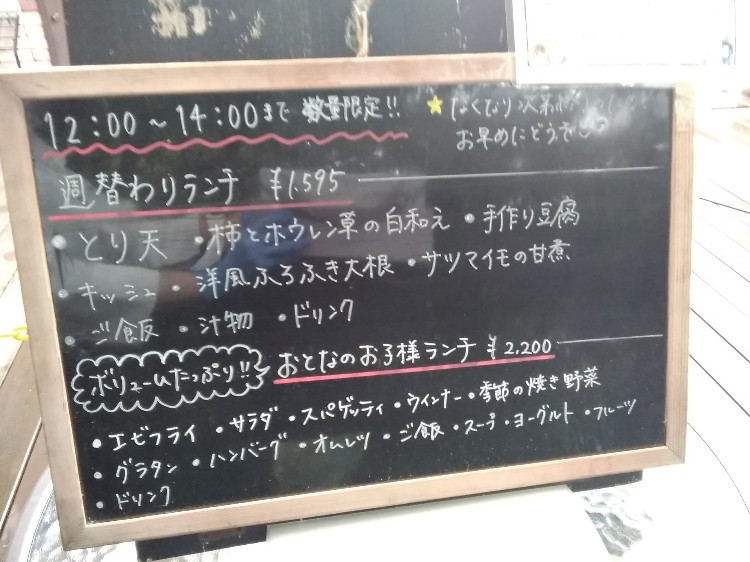 12:00～14:00まで 数量限定!!
★なくなり次第
お早めにどうぞ
週替わりランチ ¥1.595
・とり天 ・柿とホウレン草の白和え ・手作り豆腐
・キッシュ ・洋風ふろふき大根 ・サツマイモの甘煮
・ご飯 ・汁物 ・ドリンク
ボリュームたっぷり!! おとなのお子様ランチ ¥2.200
・エビフライ ・サラダ ・スパゲッティ ・ウインナー ・季節の焼き野菜
・グラタン ・ハンバーグ ・オムレツ ・ご飯 ・スープ ・ヨーグルト ・フルーツ
・ドリンク